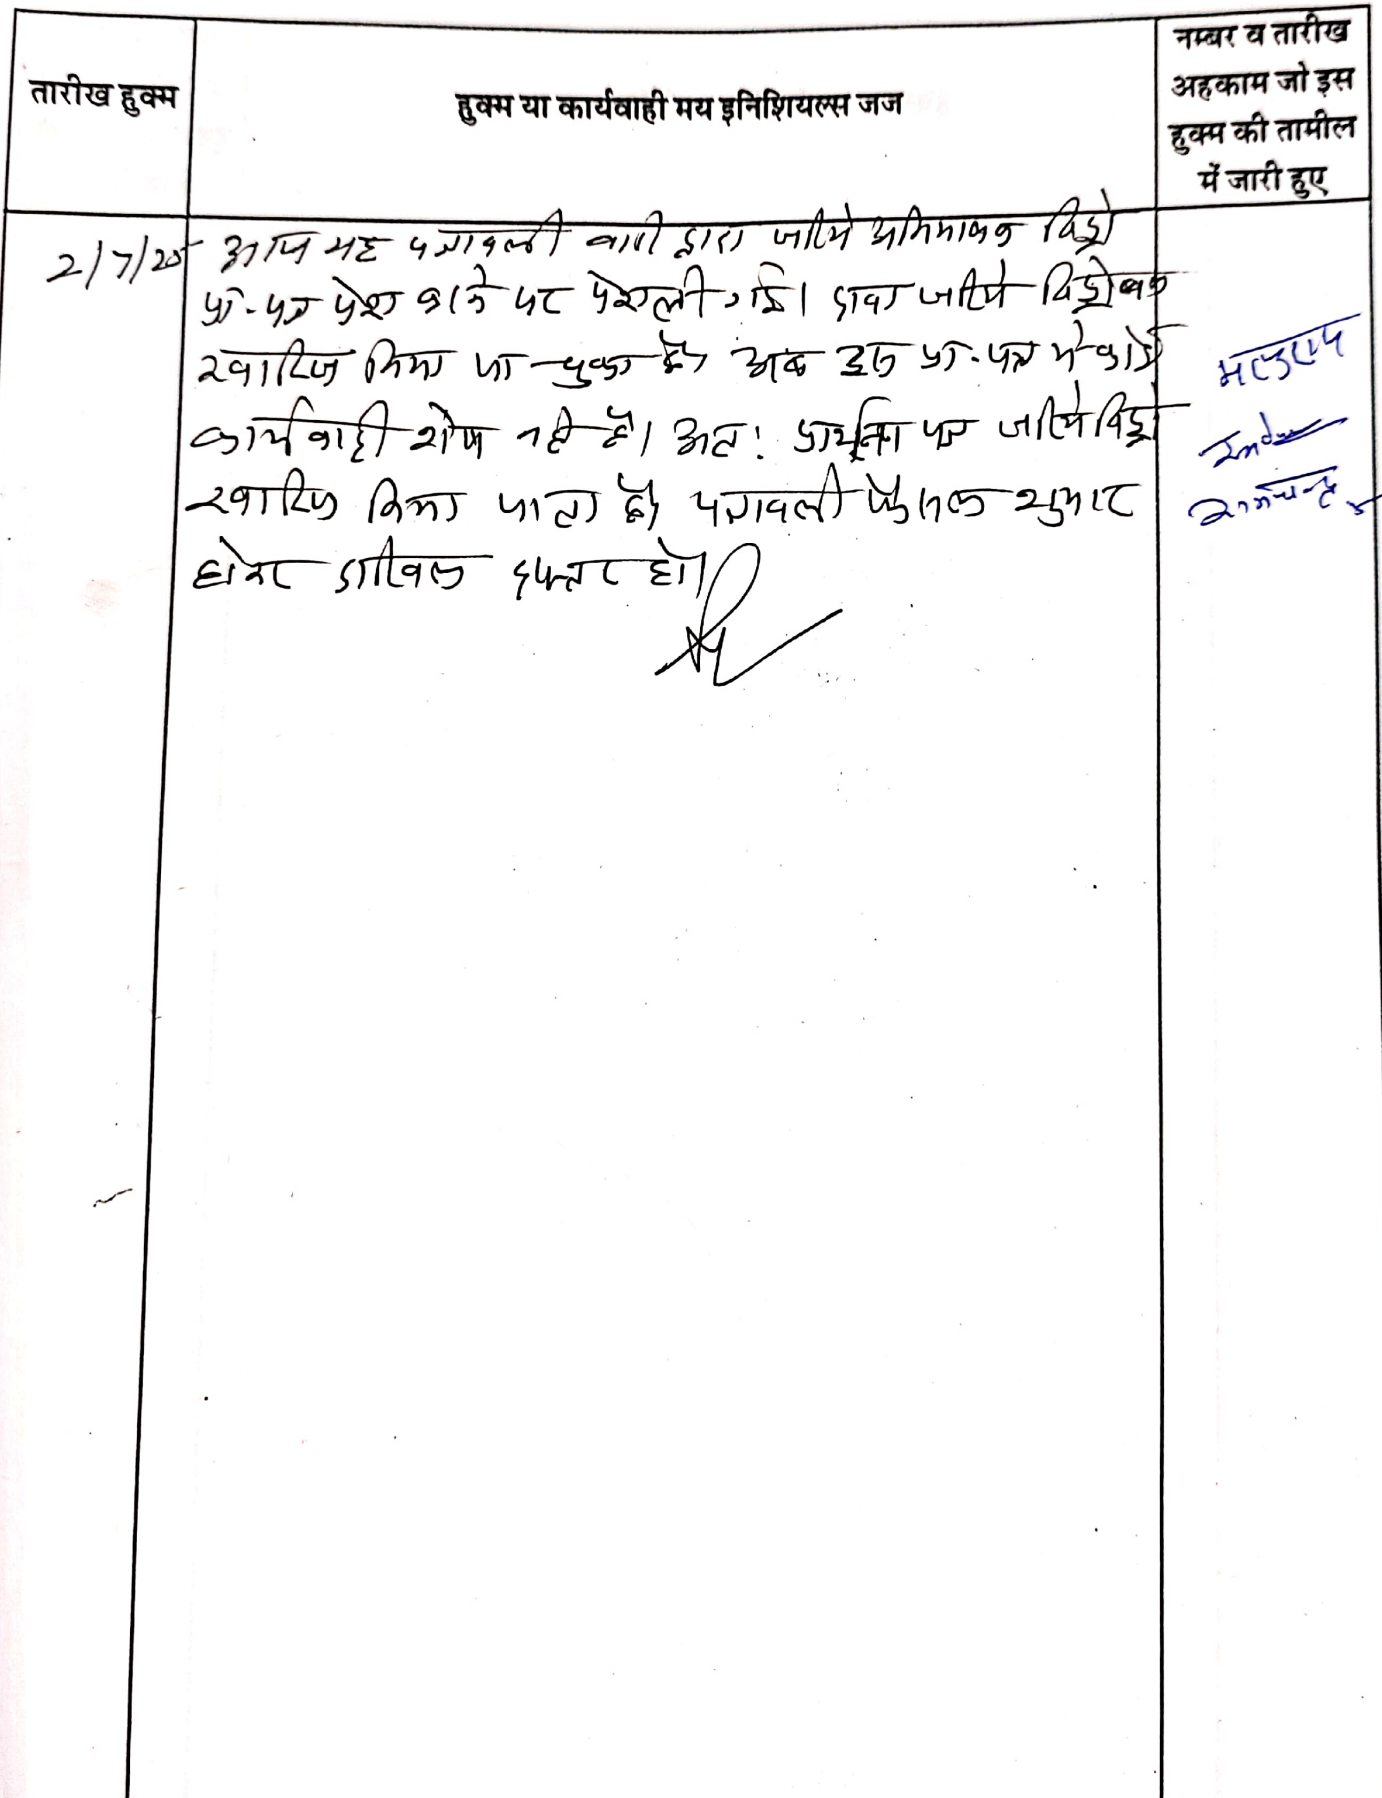 तारीख हुक्म
हुक्म या कार्यवाही मय इनिशियल्स जज
नम्बर व तारीख
अहकाम जो इस
हुक्म की तामील
में जारी हुए
2/7/25 आज यह पत्रावली वादी द्वारा जरिये अभिभाषक विड्रो
प्रा.पत्र पेश करने पर पेश ली गई। दावा जरिये विड्रो
खारिज किया जा चुका है। अब इस प्रा.पत्र में कोई
कार्यवाही शेष नही है। अत: प्रार्थना पत्र जरिये विड्रो
खारिज किया जाता है। पत्रावली फैसल शुमार
होकर दाखिल दफ्तर हो।
रामचन्द्र